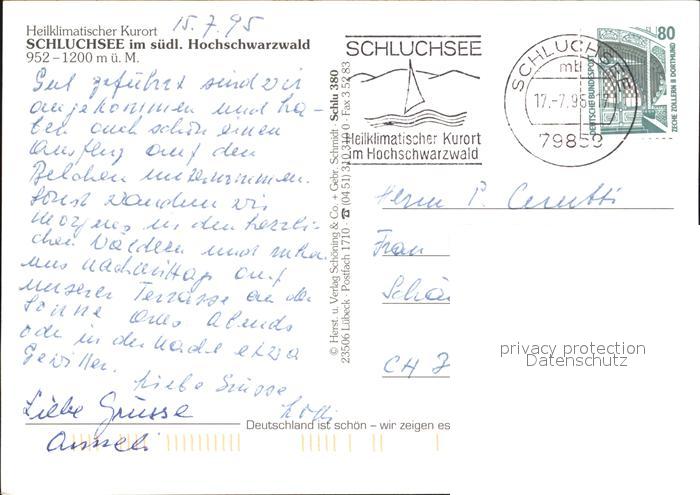 15.7.95
Heilklimatischer Kurort
SCHLUCHSEE im südl. Hochschwarzwald
952–1200 m ü. M.
Gut geführt sind wir
angekommen und ha-
ben auch schon einen
Ausflug auf den
Belchen unternommen.
Sonst wandern wir
morgens in den herrli-
chen Wäldern und
uns nachmittags auf
unserer Terrasse an der
Sonne abends
oder in der Nacht etwa
Gewitter.
Liebe Grüsse
Lotti
Liebe Grüsse
Anneli
© Herst. u. Verlag Schöning & Co. + Gebr. Schmidt · Schlu 380
23506 Lübeck · Postfach 1710 · ☎ (04 51) 3 10 31 0 · Fax 3 52 83
SCHLUCHSEE
Heilklimatischer Kurort
im Hochschwarzwald
SCHLUCHSEE
mb
17.-7.95-17
79859
80
DEUTSCHE BUNDESPOST
ZECHE ZOLLERN II DORTMUND
Herrn P. Cerutti
Frau
Schö
CH
privacy protection
Datenschutz
Deutschland ist schön – wir zeigen es